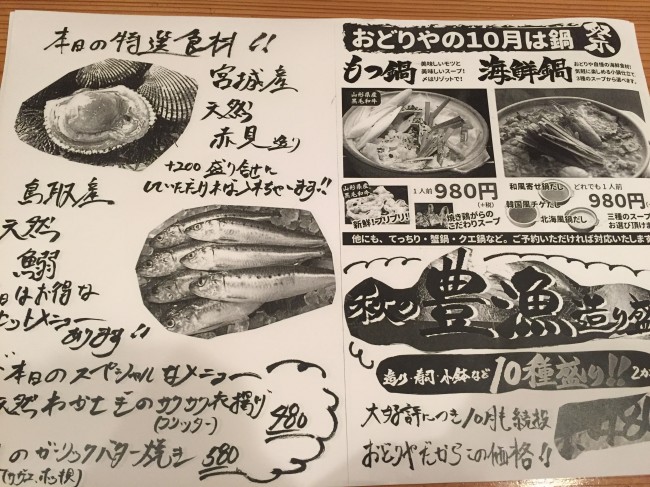 本日の特選食材!!
宮城産
天然
赤貝造り
+200 盛り合せに
していただければ入れちゃいます!!
鳥取産
天然
鰯
日はお得な
ットメニュー
あります!!
本日のスペシャルなメニュー
天然わかさぎのサクサク衣揚げ
(フリッター)
480
のガーリックバター焼き
580
おどりやの10月は鍋
祭
もつ鍋
美味しいモツと
美味しいスープ!
〆はリゾットで!
海鮮鍋
おどりや自慢の海鮮食材!
気軽に楽しめる小鍋仕立て
3種のスープから選べます。
山形県産
黒毛和牛
山形県産
黒毛和牛
新鮮!プリプリ!!
1人前 980円
(+税)
焼き鶏がらの
こだわりスープ
和風寄せ鍋だし
韓国風チゲだし
北海風鍋だし
どれでも1人前
980円
三種のスープ
お選び頂けま
他にも、てっちり・蟹鍋・クエ鍋など。ご予約いただければ対応いたします
秋の豊漁造り盛
造り・寿司・小鉢など
10種盛り!!
2カ
大好評につき10月も続投
おどりやだからこの価格!!